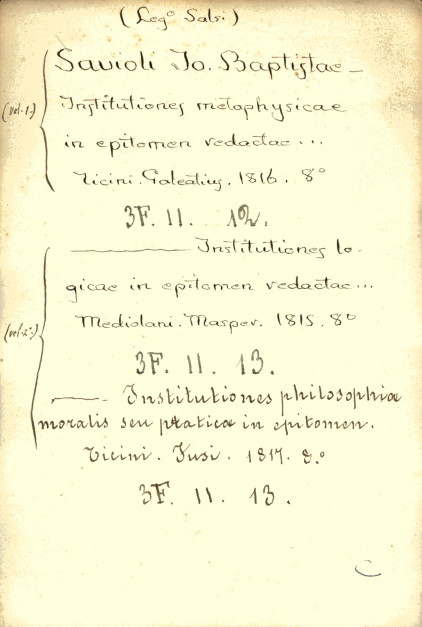 (Leg.º Salv.)
Savioli Jo. Baptistae —
(vol. 1.º)
Institutiones metaphysicae
in epitomen redactae...
Ticini. Galeatius. 1816. 8º
3F. II. 12.
——— Institutiones lo-
gicae in epitomen redactae...
(vol. 2º)
Mediolani. Masper. 1815. 8º
3F. II. 13.
—— Institutiones philosophiæ
moralis seu praticæ in epitomen.
Ticini. Fusi. 1817. 8.º
3F. II. 13.